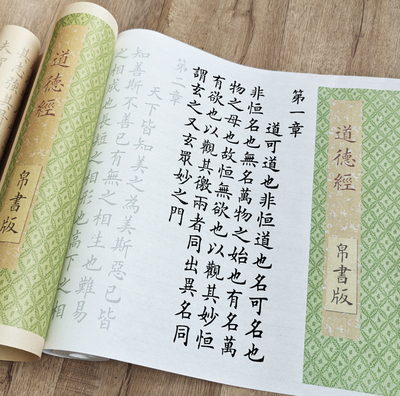 道德經
帛書版
第一章
道可道也非恒道也名可名也
非恒名也無名萬物之始也有名萬
物之母也故恒無欲也以觀其妙恒
有欲也以觀其徼兩者同出異名同
謂玄之又玄眾妙之門
第二章
天下皆知美之為美斯惡已皆
知善斯不善已有無之相生也難易
之相成也長短之相形也高下之相
道德經
帛書版